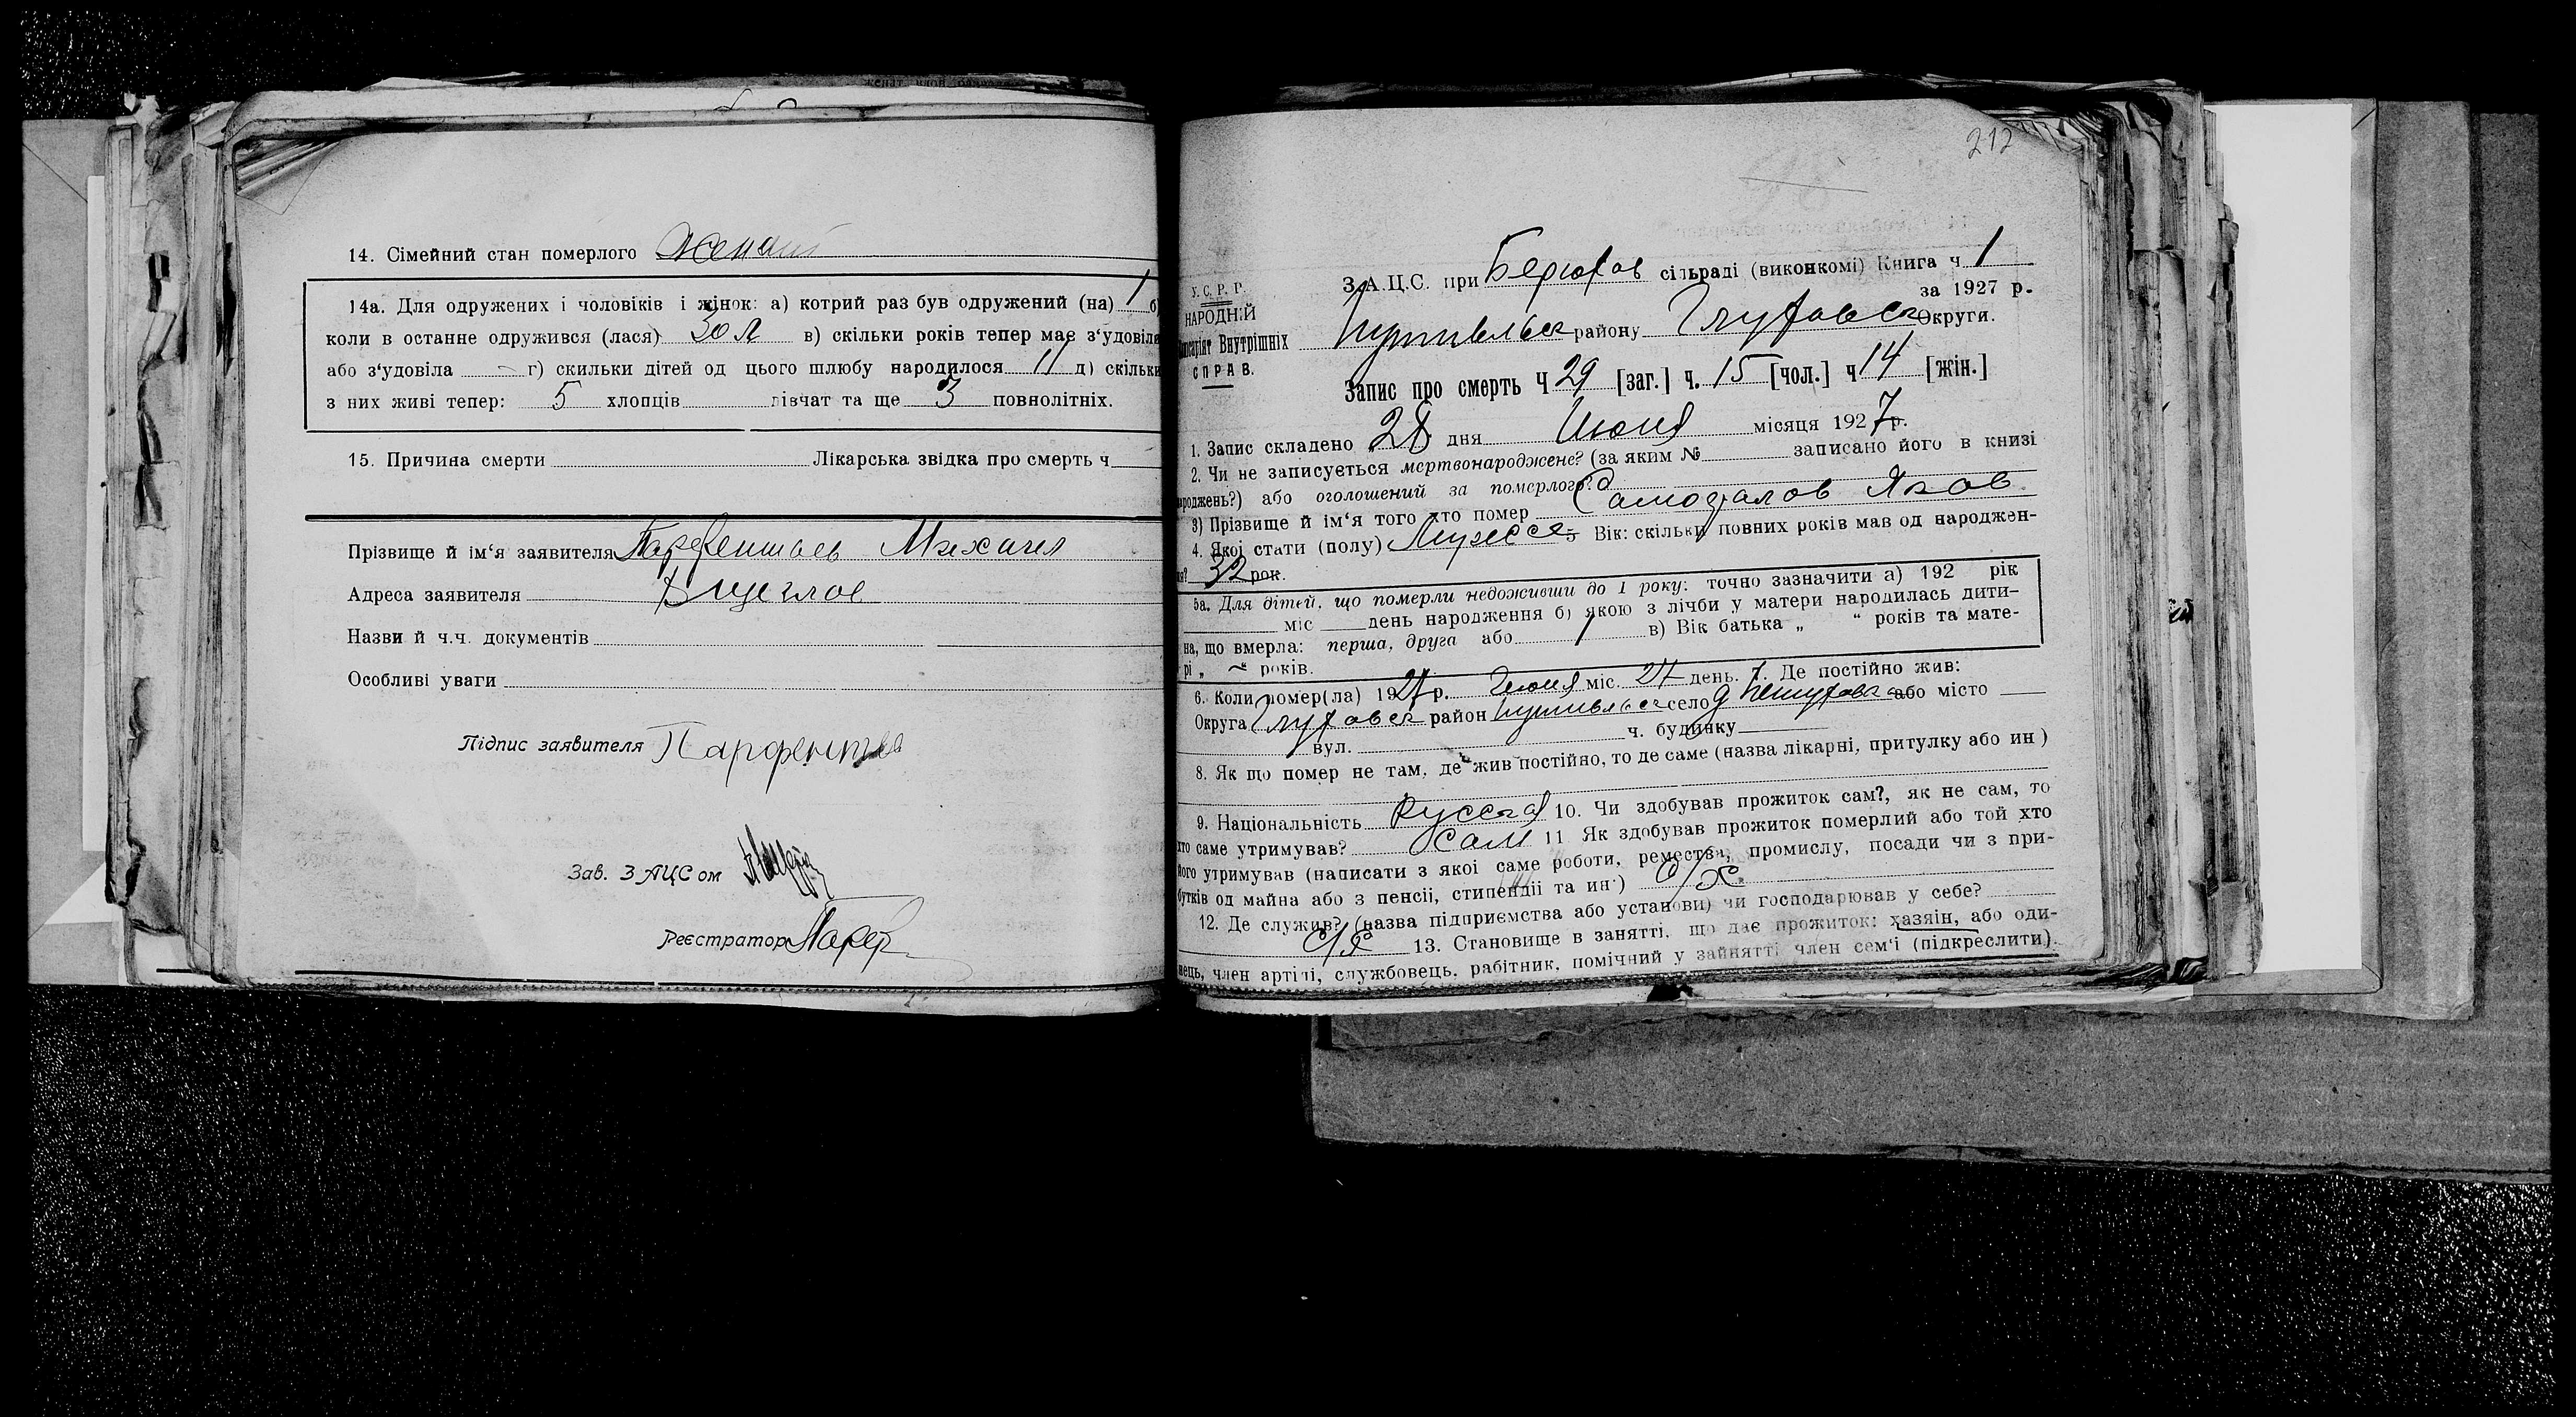 14. Сімейний стан померлого Женат
14а. Для одружених і чоловіків і жінок: а) котрий раз був одружений (на) 1 б)
коли в останне одружився (лася) 30 л в) скільки років тепер має з‘удовіла
або з‘удовіла г) скильки дітей од цього шлюбу народилося 11 д) скільки
з них живі тепер: 5 хлопців дівчат та ще 3 повнолітніх.
15. Причина смерти Лікарська звідка про смерть ч
Прізвище й ім‘я заявителя Михаил
Адреса заявителя
Назви й ч.ч. документів
Особливі уваги
Підпис заявителя
Зав. ЗАЦСом
Реєстратор
212
У.С.Р.Р.
НАРОДНІЙ
Комісаріят Внутрішніх
СПРАВ.
З.А.Ц.С. при Берюхов сільраді (виконкомі) Книга ч 1
за 1927 р.
Путивльск району Глуховск Округи.
Запис про смерть Ч 29 [заг.] ч. 15 [чол.] ч 14 [жін.]
1. Запис складено 28 дня Июня місяця 1927 р.
2. Чи не записується мертвонароджене? (за яким № записано його в книзі
народжень?) або оголошений за померлого?
3) Прізвище й ім‘я того хто помер Самодалов Яков
4. Якої стати (полу) Мужеска 5 Вік: скільки повних років мав од народжен-
ня? 32 рок.
5а. Для дітей, що померли недоживши до 1 року: точно зазначити а) 192 рік
міс день народження б) якою з лічби у матери народилась дити-
на, що вмерла: перша, друга або в) Вік батька „ “ років та мате-
рі „ “ років.
6. Коли помер(ла) 1927 р. Июня міс. 27 день. 7. Де постійно жив:
Округа Глуховск район Путивльск село або місто
вул. ч. будинку
8. Як що помер не там, де жив постійно, то де саме (назва лікарні, притулку або ин)
9. Національність Русская 10. Чи здобував прожиток сам?, як не сам, то
хто саме утримував? Сам 11 Як здобував прожиток померлий або той хто
його утримував (написати з якої саме роботи, ремества, промислу, посади чи з при-
бутків од майна або з пенсії, стипендії та ин.) с/х.
12. Де служив? (назва підприємства або установи) чи господарював у себе?
с/х 13. Становище в занятті, що дає прожиток: хазяін, або оди-
нець, член артілі, службовець, рабітник, помічний у зайнятті член сем‘і (підкреслити).